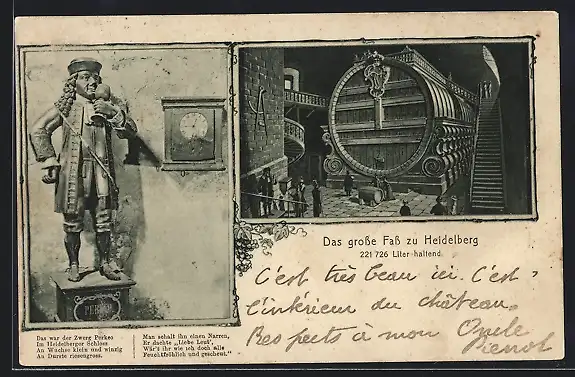 PERKEO
Das war der Zwerg Perkeo
Im Heidelberger Schloss
An Wuchse klein und winzig
An Durste riesengross.
Man schalt ihn einen Narren,
Er dachte „Liebe Leut',
Wär't ihr wie ich doch alle
Feuchtfröhlich und gescheut."
Das große Faß zu Heidelberg
221 726 Liter haltend.
C'est très beau ici. C'est
l'intérieur du château.
Respects à mon Oncle